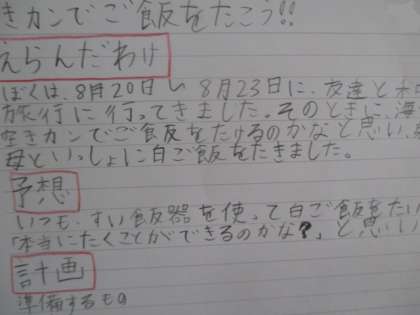 きカンでご飯をたこう!!
えらんだわけ
ぼくは、8月20日〜8月23日に、友達と
旅行に行ってきました。そのときに、海
空きカンでご飯をたけるのかなと思い、
母といっしょに白ご飯をたきました。
予想
いつも、すい飯器を使って白ご飯をたい
「本当にたくことができるのかな?」と思い
計画
準備するもの